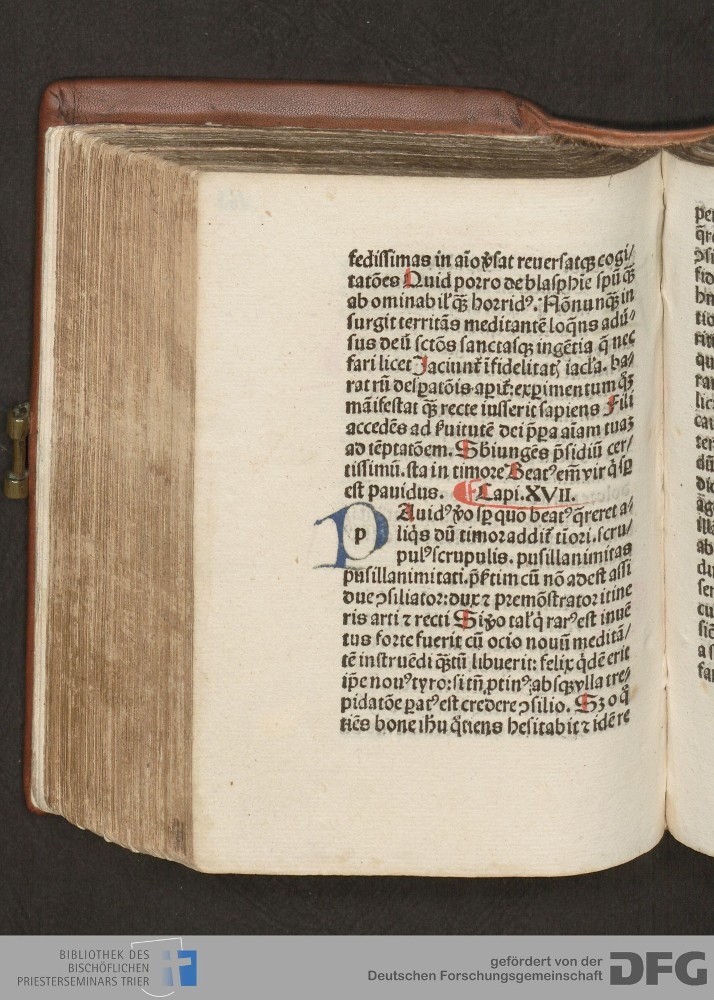 fedissimas in aīo ꝟsat reuersatqꝫ cogi/
tatōes Quid porro de blasphīe spū qꝫ̄
ab ominabil' qꝫ̄ horridꝰ. Nōnunqꝫ̄ in
surgit territās meditantē loqn̄s adū/
sus deū sctōs sanctasqꝫ ingētia q̄ nec
fari licet Jaciunt̄ īfidelitatꝭ iacl'a. ba/
rat rū despatōis apit̄: exꝑimentum qꝫ̄
māifestat qꝫ̄ recte iusserit sapiens Fili
accedēs ad ẜuitutē dei p̄ꝑa aīam tuaꝫ
ad tēptatōem. Sbiungēs p̄sidiū cer/
tissimū. sta in timore Beatꝰ em̄ vir q̇ sꝑ
est pauidus. Capi. XVII.
p Auidꝰ ꝟo sꝑ quo beatꝰ q̄reret a/
liq̇s dū timor addit̄ tīori. scru/
pulꝰ scrupulis. pusillanimitas
pusillanimitati. p̄ẜtim cū nō adest assi
due ꝯsiliator: dux ⁊ premōstrator itine
ris arti ⁊ recti Si ꝟo tal' q̇ rarꝰ est inuē
tus forte fuerit cū ocio nouū meditā/
tē instruēdi qꝫ̄tū libuerit: felix q̇dē erit
ip̄e nouꝰ tyro: si tn̄ ptinꝰ absqꝫ vlla tre/
pidatōe paratꝰ est credere ꝯsilio. Sꝫ o q̊
tiēs bone ihū q̊tiens hesitabit ⁊ idē re
per
ꝯsi
fid
tio
qu
lic
ter
dū
die
ab
du
ser
cu
a s
far
BIBLIOTHEK DES
BISCHÖFLICHEN
PRIESTERSEMINARS TRIER
gefördert von der
Deutschen Forschungsgemeinschaft
DFG